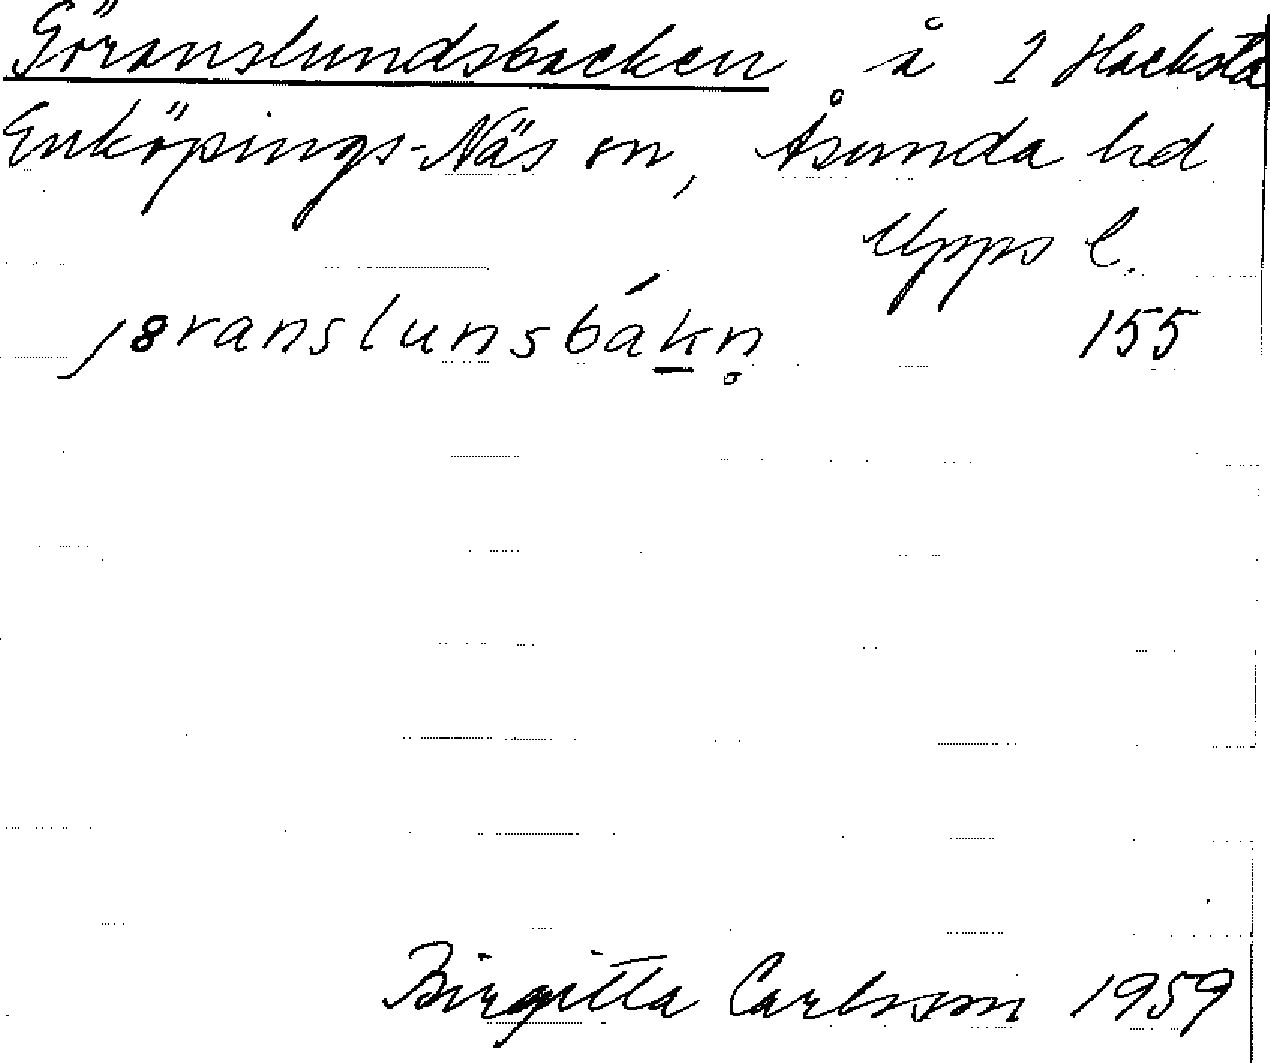 Göranslundsbacken å 1 Hacksta
Enköpings-Näs sn, Åsunda hd
Upps l.
j8ranslunsbák̲n̥ 155
Birgitta Carlsson 1959